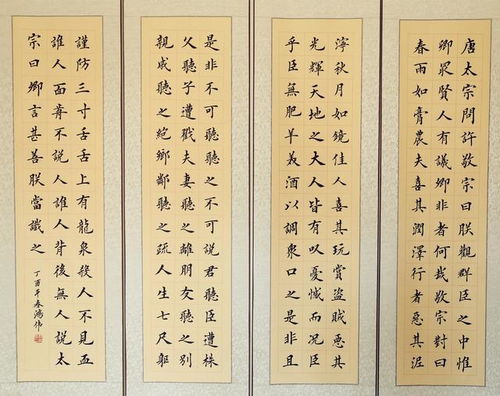 唐太宗問許敬宗曰朕觀群臣之中惟
卿最賢人有議卿非者何哉敬宗對曰
春雨如膏農夫喜其潤澤行者惡其泥
濘秋月如鏡佳人喜其玩賞盜賊惡其
光輝天地之大人皆有以憂憾而況臣
乎臣無肥羊美酒以調眾口之是非且
是非不可聽聽之不可說君聽臣遭株
父聽子遭戮夫妻聽之離朋友聽之別
親戚聽之絕鄉鄰聽之疏人生七尺軀
謹防三寸舌舌上有龍泉殺人不見血
誰人面前不說人誰人背後無人說太
宗曰卿言甚善朕當識之
丁酉年春鴻伟